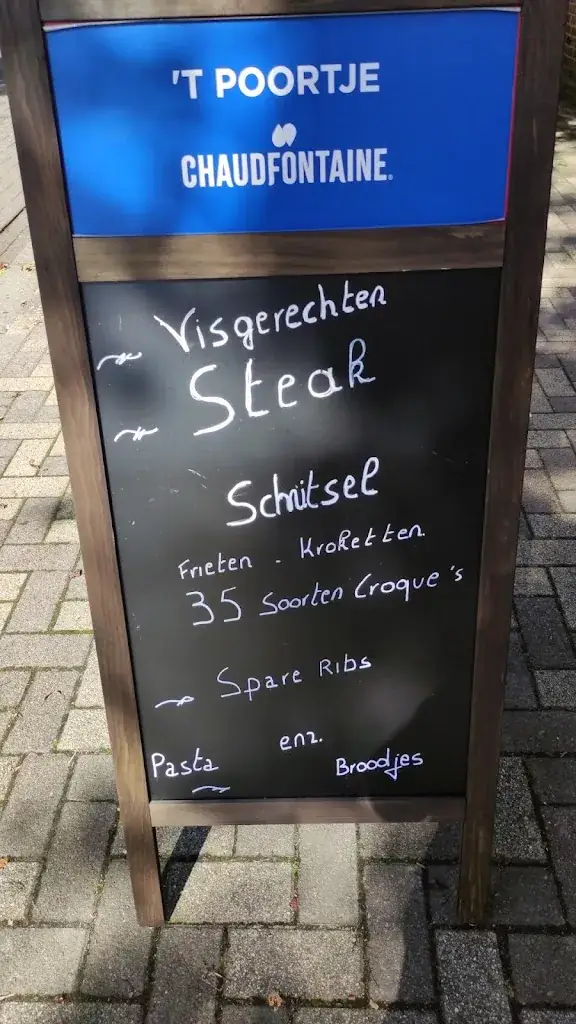 'T POORTJE
CHAUDFONTAINE®
Visgerechten
Steak
Schnitsel
Frieten - Kroketten
35 Soorten Croque's
Spare Ribs
enz.
Pasta Broodjes